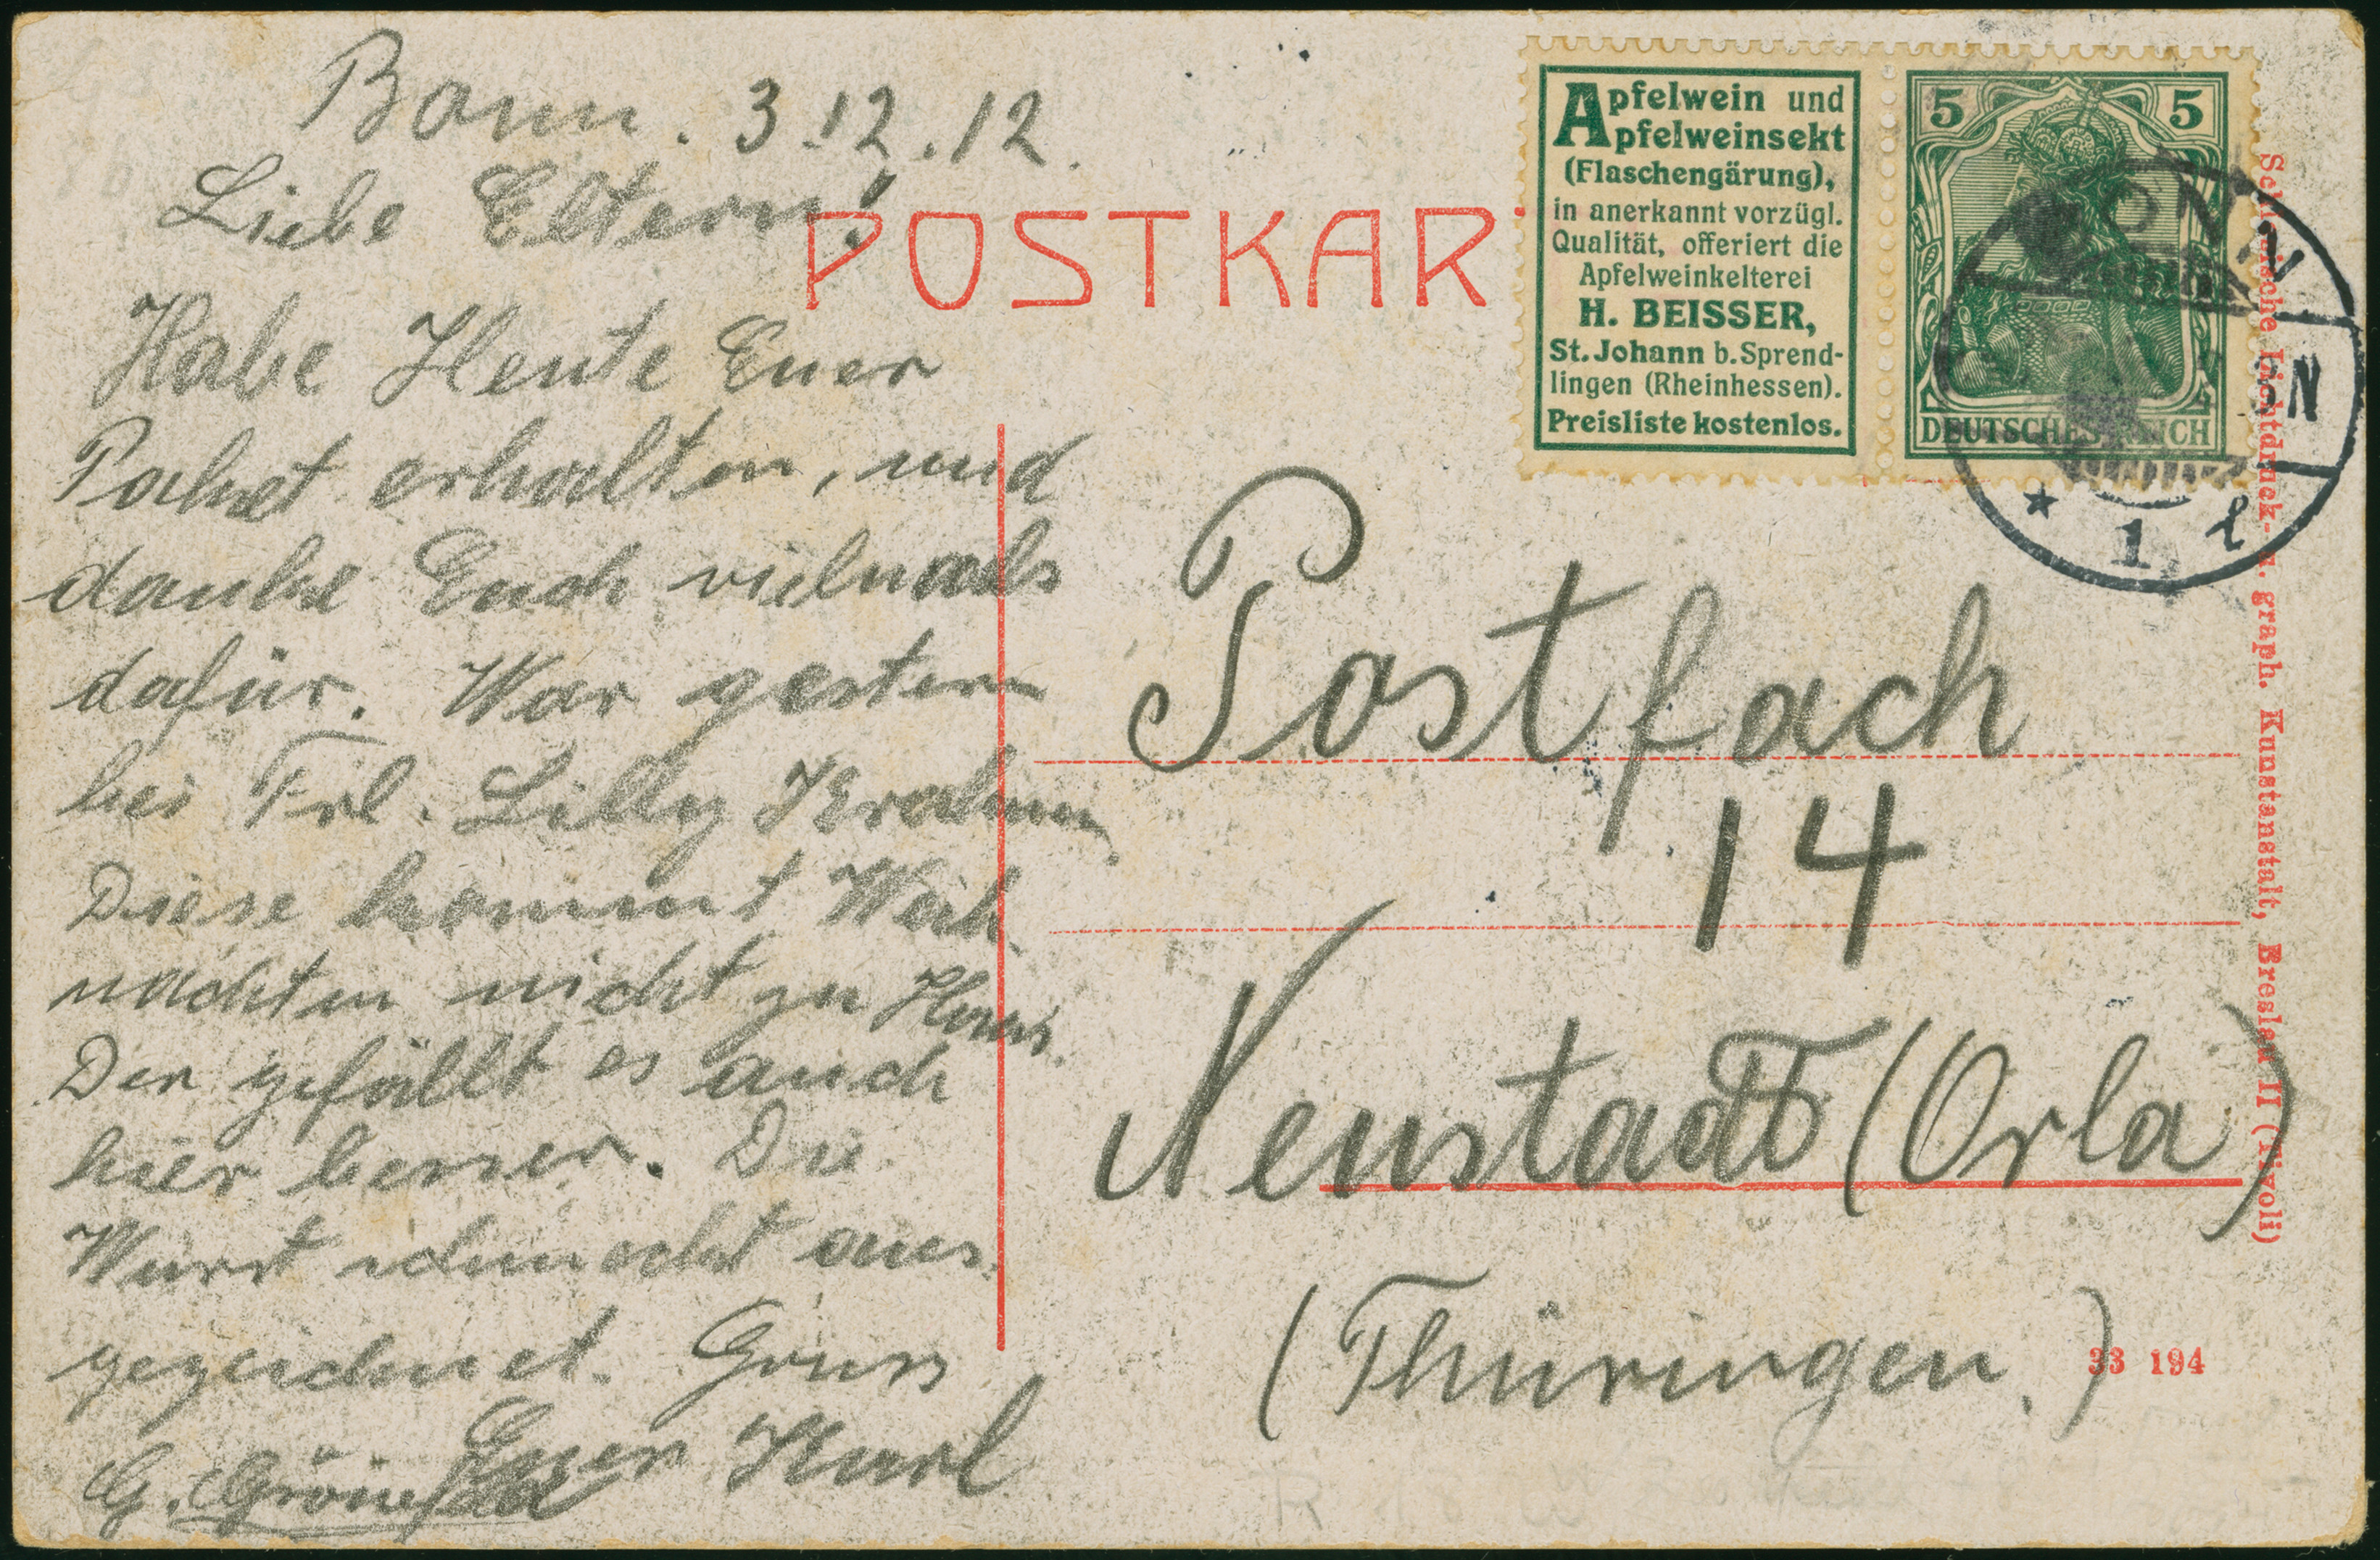 Bonn. 3.12.12.
Liebe Eltern!
Habe Heute Euer
Paket erhalten, und
danke Euch vielmals
dafür. War gestern
bei Frl. Lilly
Diese kommt Weih
nachten nicht zu Haus.
Der gefällt es auch
hier besser. Die
Wurst schmeckt aus
gezeichnet. Gruss
Euer Karl
G.
POSTKAR
Apfelwein und
Apfelweinsekt
(Flaschengärung),
in anerkannt vorzügl.
Qualität, offeriert die
Apfelweinkelterei
H. BEISSER,
St. Johann b. Sprend-
lingen (Rheinhessen).
Preisliste kostenlos.
5 5
DEUTSCHES REICH
BONN
N
* 1 l
Postfach
14
Neustadt (Orla)
(Thüringen.)
33 194
Schlesische Lichtdruck- u. graph. Kunstanstalt, Breslau II (Tivoli)